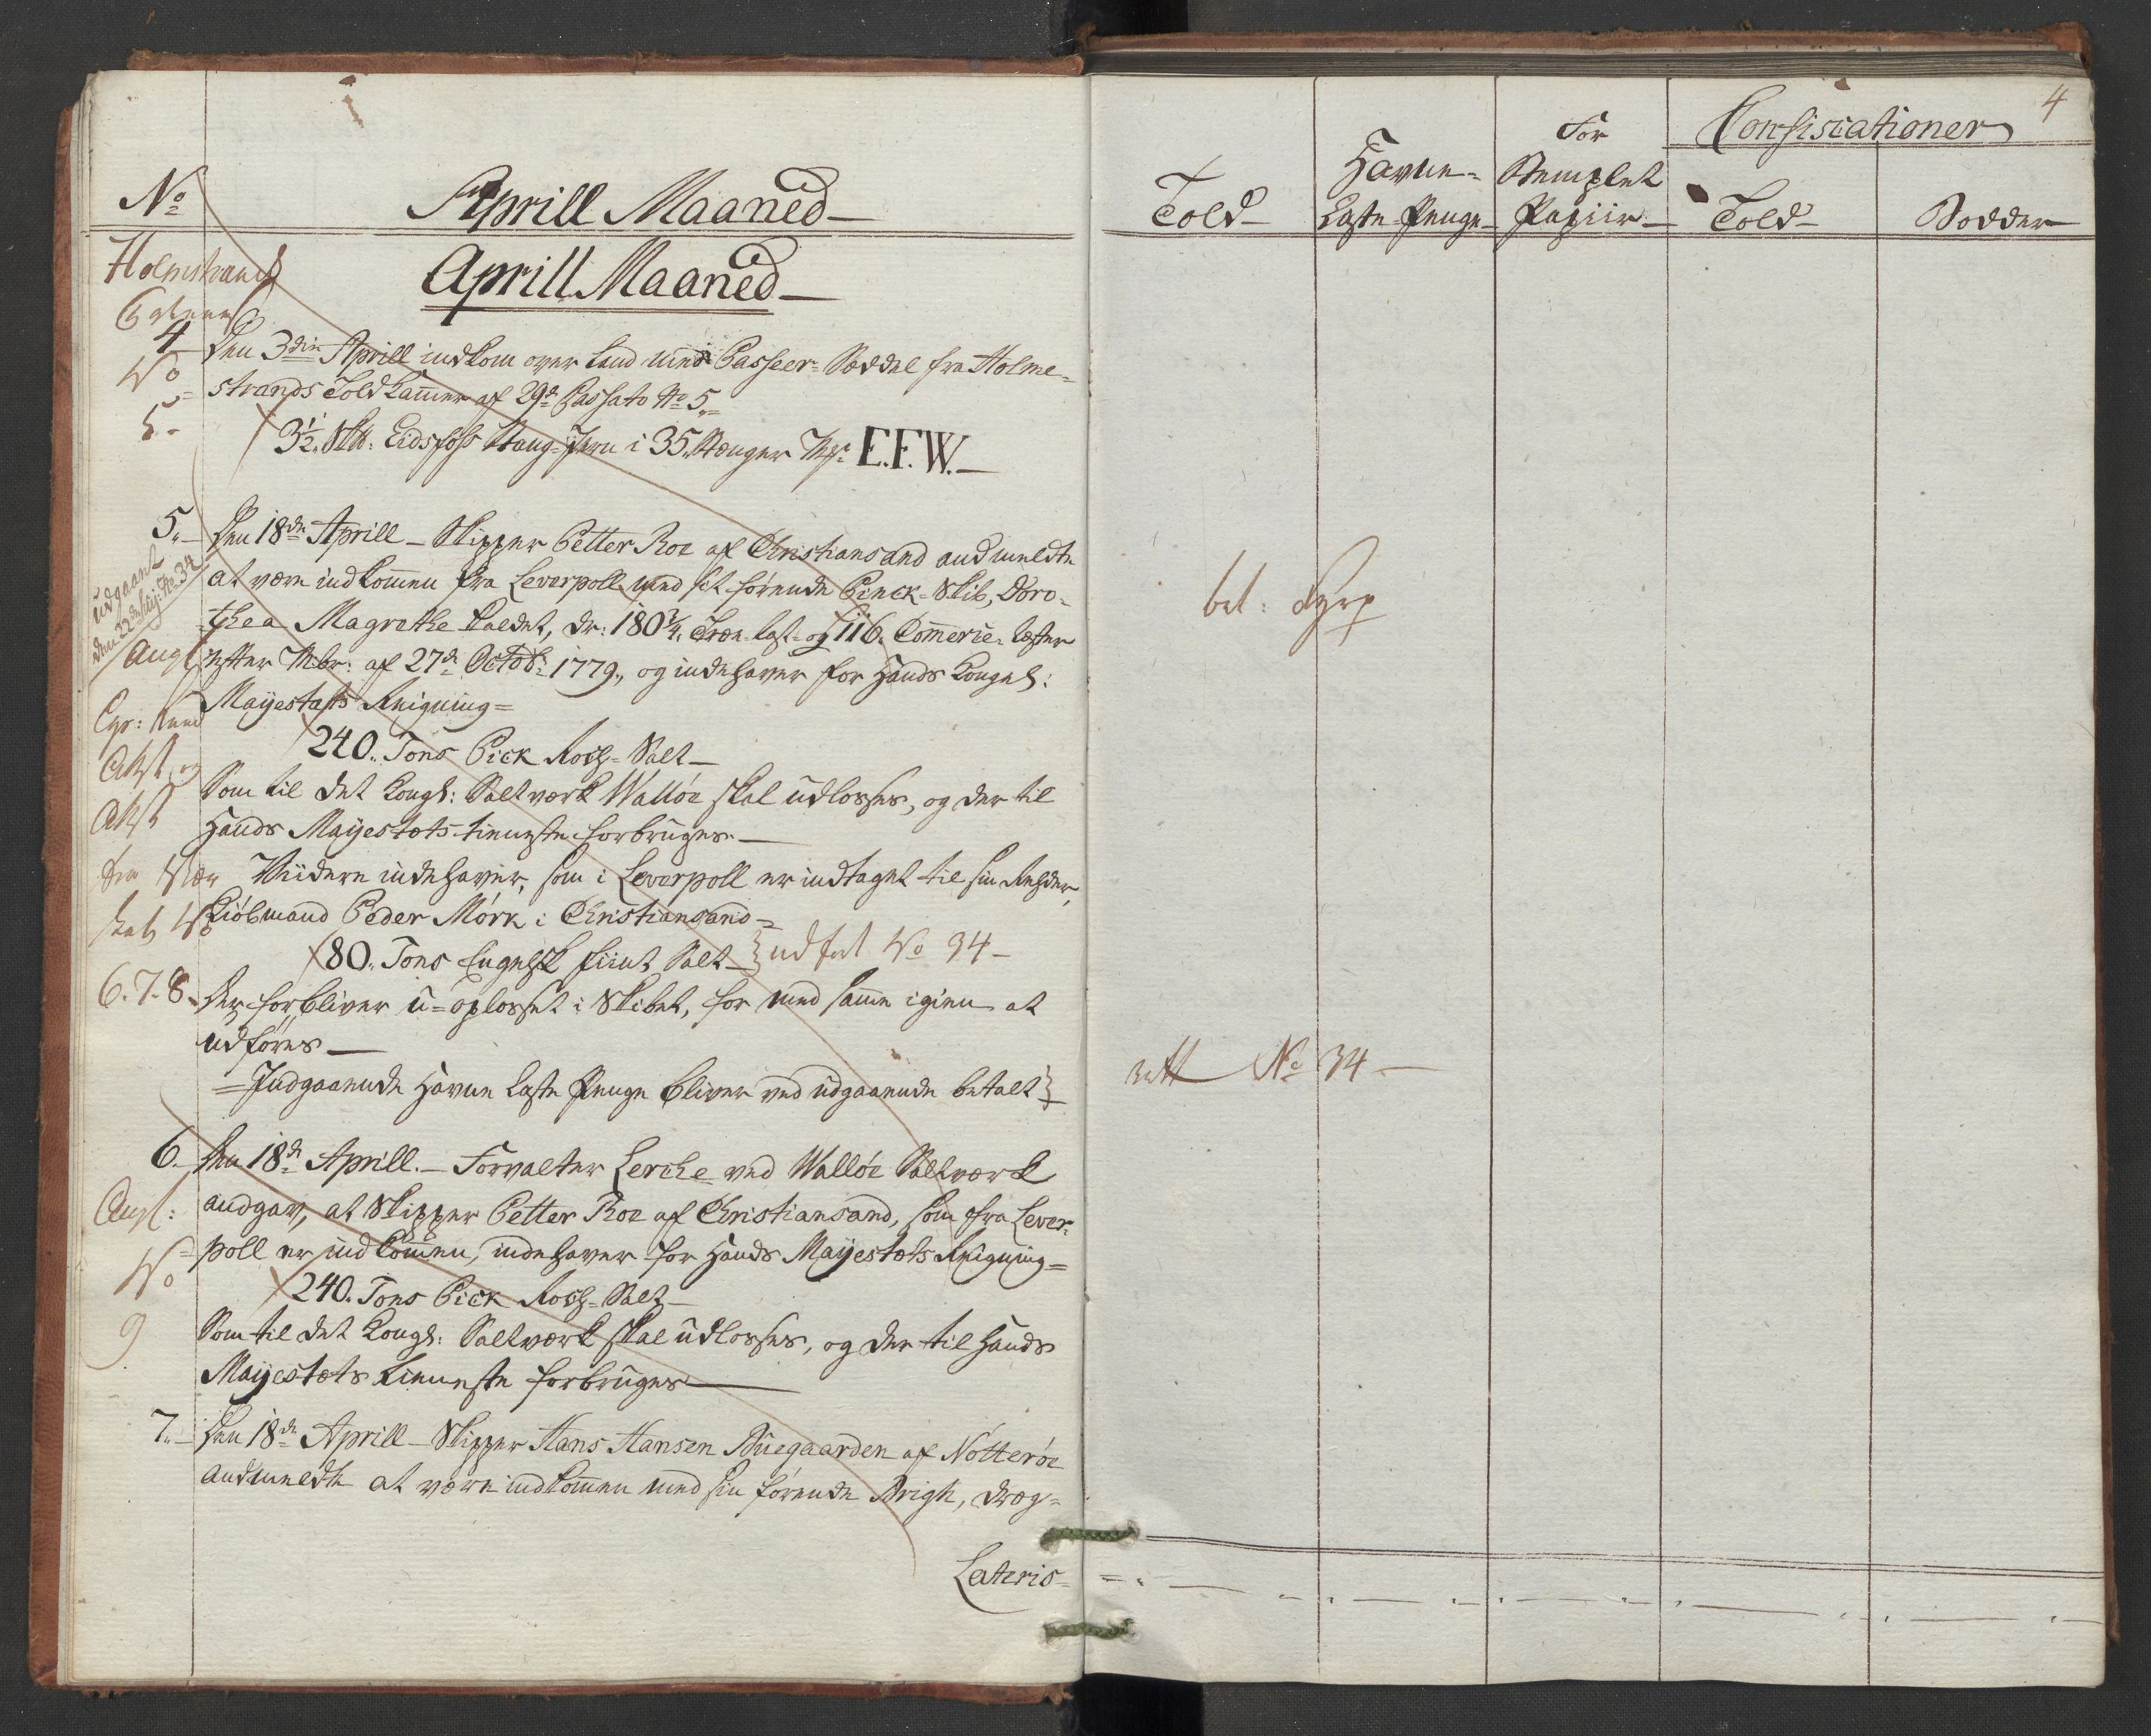 No
Aprill Maaned
Holmstrand
Aprill Maaned
4 Den 3die Aprill indkom over Land med Passeer-Sæddel fra Holme-
No
strands Toldkammer af 29de Passato No 5
5
3½ Sk℔: Eidsfoss Stang-Jern i 35 Stænger Mrk: E.F.W.
5. Den 18de Aprill Skipper Petter Roe af Christiansand andmeldte
at være indkommen fra Leverpoll med sit førende Pinck-Skib, Doro-
udgaaet
den 22de No 34
thea Magrethe kaldet, dr: 180¾ Træ-Last og 116 Commerce-Læster
Ang
efter Mbr: af 27de Octob: 1779, og indehaver for Hands Kongel:
Mayestæts Reigning
240 Tons Pick Roch-Salt
Attst og
Som til det Kongl: Saltværk Walløe skal udlosses, og der til
Attst
Hands Mayestæts tieneste forbruges
Viidere indehaver, som i Leverpoll er indtaget til sin Rehder,
Kiøbmand Peder Mørk i Christiansand
80 Tons Engelsk fiint Salt udført No 34
6.7.8. Der forbliver u-oplosset i Skibet, for med samme igien at
udføres
Indgaaende Havne Laste Penge bliver ved udgaaende betalt
6. Den 18de Aprill. Forvalter Lerche ved Walløe Saltværk
Angl:
andgav, at Skipper Petter Roe af Christiansand, som fra Lever-
poll er indkommen, indehaver for Hands Mayestæts Reigning
No
240 Tons Pick Roch-Salt
9
Som til det Kongl: Saltværk skal udlosses, og der til Hands
Mayestæts tieneste forbruges
7. Den 18de Aprill Skipper Hans Hansen Buegaarden af Nøtterøe
andmeldte at være indkommen med sin førende Brigh, dræg-
Lateris
4
Told
Havne-
Laste-Penge
For
Stemplet
Papiir
Confiscationer
Told
Bødder
No 34